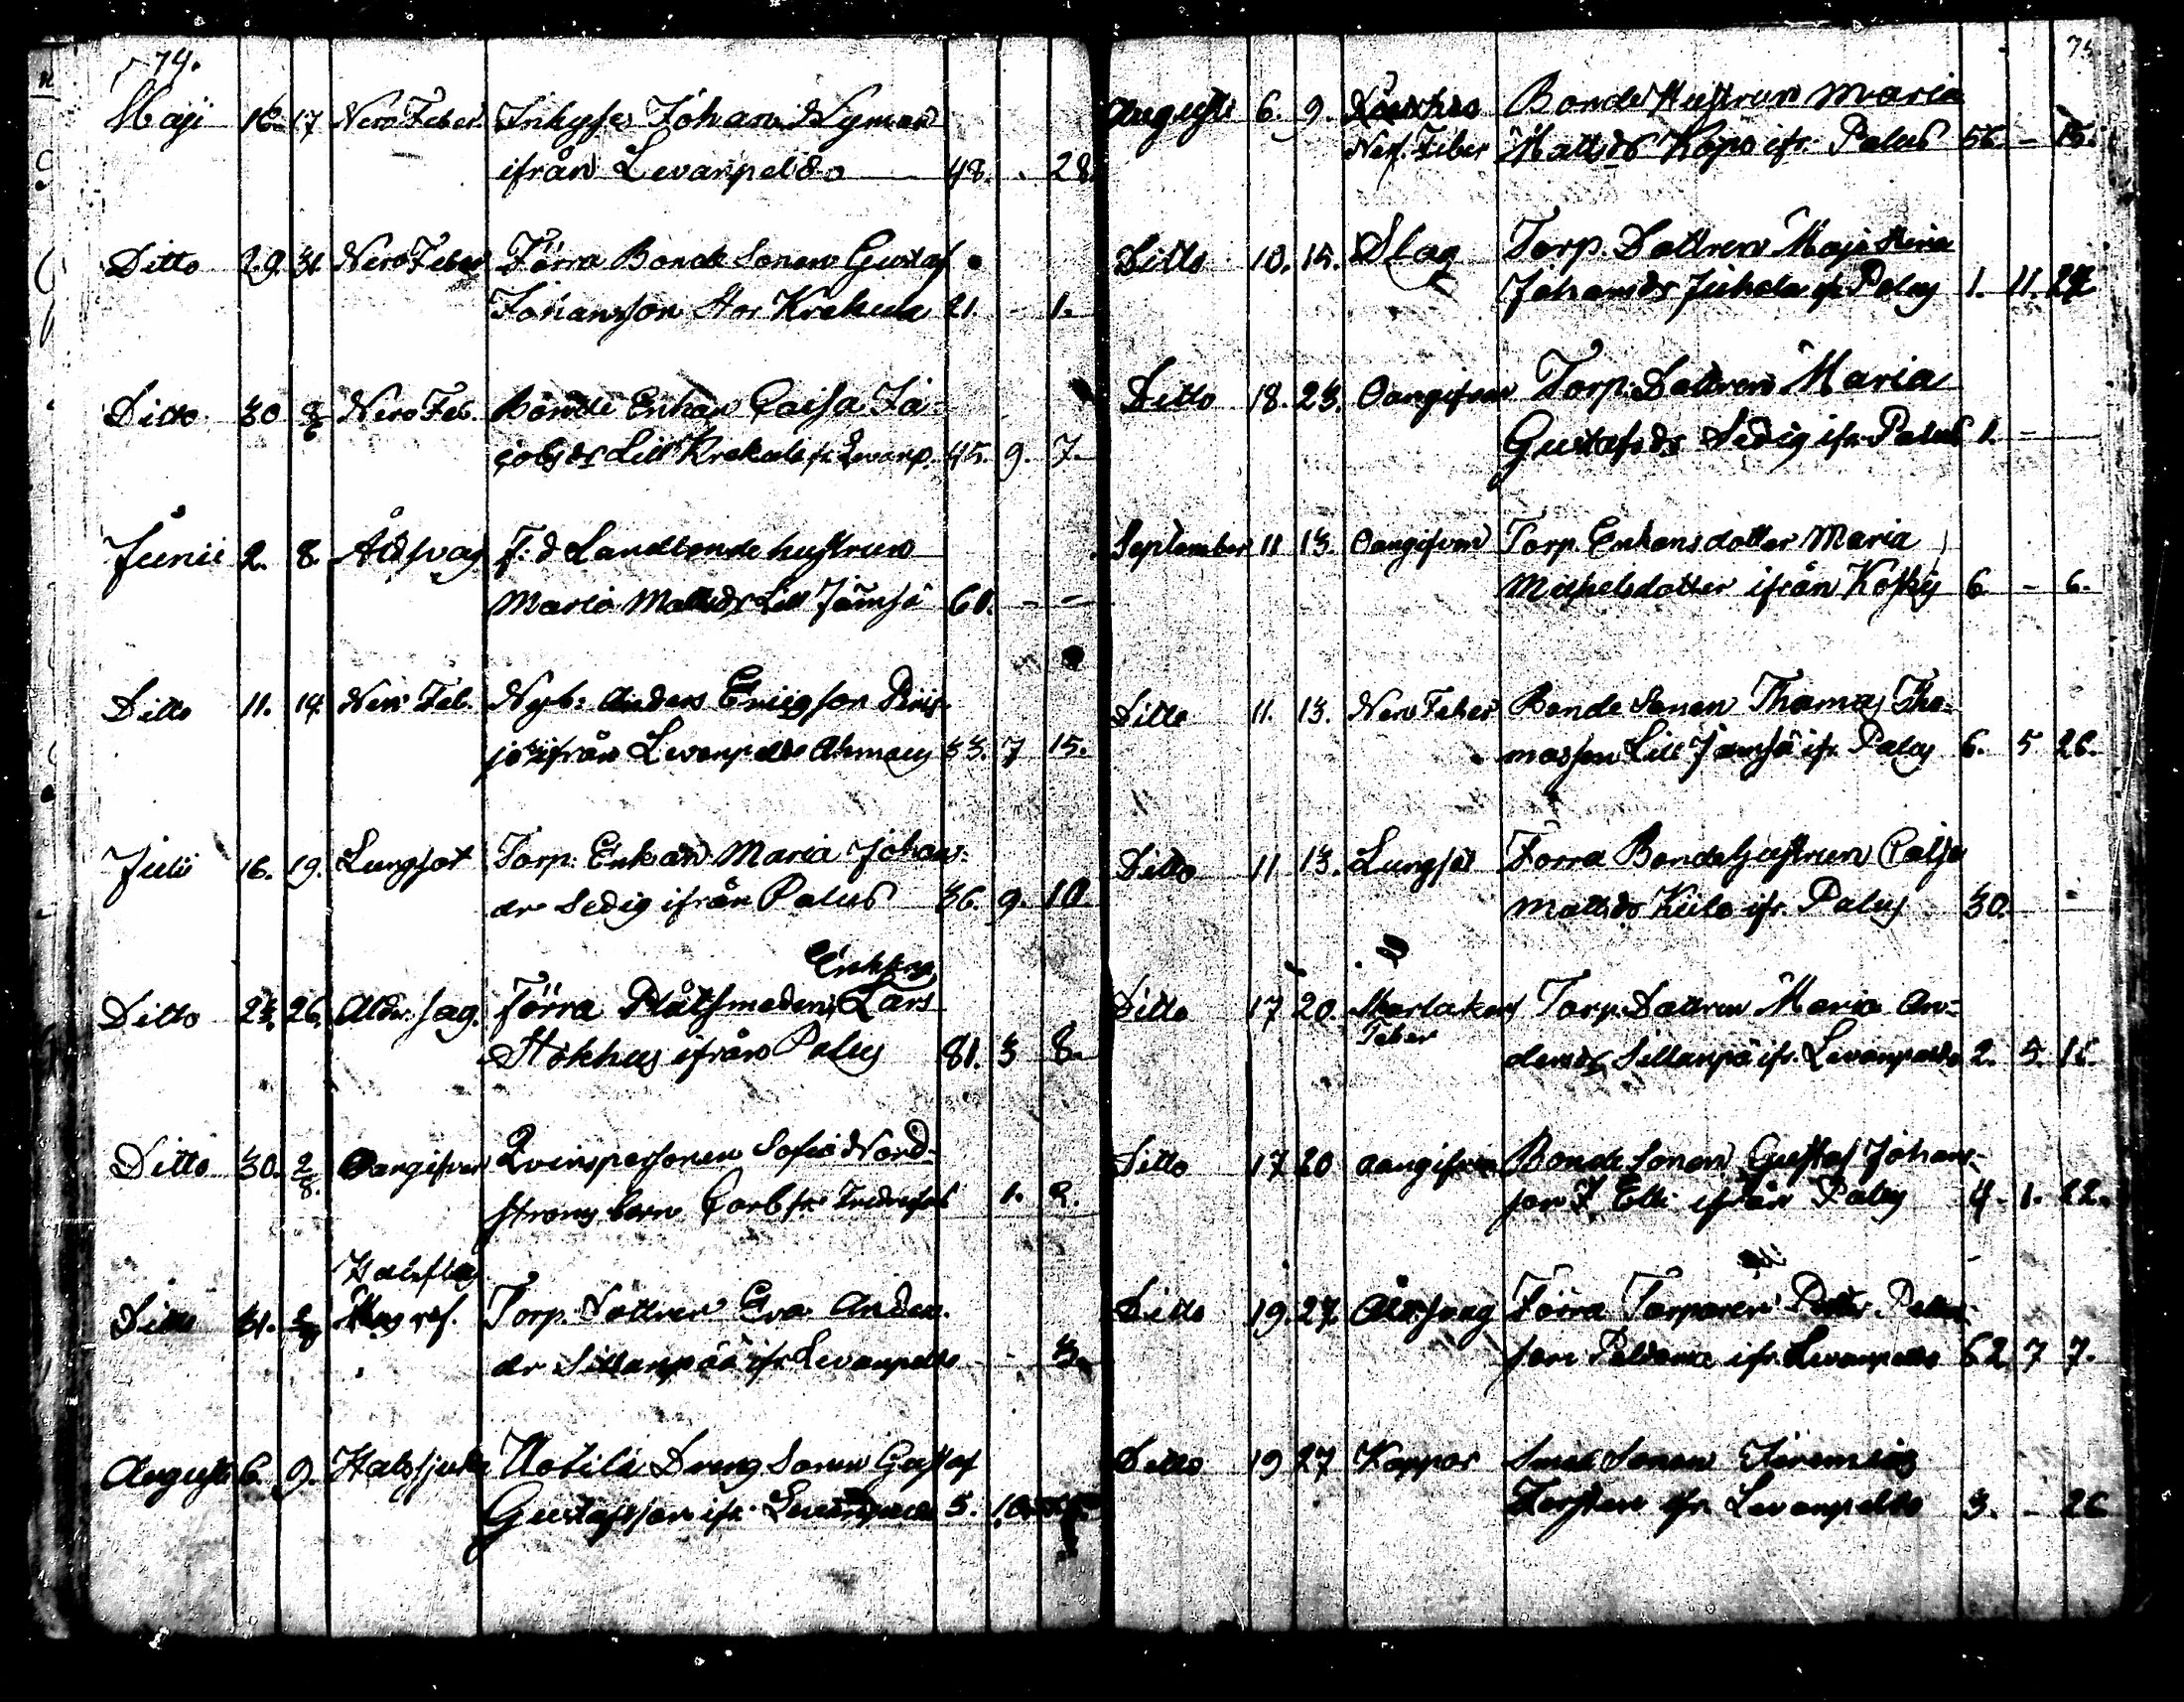 74.
Maji 16. 17 Nerv Feber. Inhyses Johan Nyman
ifrån Levanpeldo 48. . 28.
Ditto 29. 31. Nerv Feber Förra Bonde Sonen Gustaf
Johansson Stor Krekula 21. - 1.
Ditto 30 2/6 Nerv Feb. Bonde Enkan Caisa Ja-
cobsdr Lill Krekula fr. Levanp. 45. 9. 7.
Junii 2. 8. Åldsvag F: d Landbonde hustrun
Maria Mattsdr Lill Jämsä 61. - -
Ditto 11. 14. Nerv Feb. Nyb: Anders Ericsson
ifrån Levanpeldo 33. 7 15.
Julii 16. 19. Lungsot Torp. Enkan Maria Johans-
dr Sedig ifrån Palus 36. 9. 10
Enkling
Ditto 23. 26. Ålder. sag. Förra Lars
Stökhus ifrån Palus 81. 3 8.
Ditto 30. 2/8. Oangifven Qvinspersonen Sofia Nord-
stroms barn Carl fr. 1. 2.
Ditto 31. Torp. Dottren Eva Anders-
dr Sillanpää ifr. Levanpeldo - - 3.
Augusti 6. 9. Halssjuka Notila Dreng Sonen Gustaf
Gustafsson ifr. 5. 10.
75.
Augusti 6. 9. Bonde Hustrun Maria
Nerf. Feber Mattsdr ifr. Palus 56. - 15.
Ditto 10. 15. Slag Torp. Dottren Maja Stina
Johansdr Juhala ifr. Palus 1. 11. 27
Ditto 18. 23. Oangifven Torp. Dottren Maria
Gustafsdr Sedig ifr. Palus 1. -
September 11 13. Oangifven Torp. Enkans dotter Maria
Michelsdotter ifrån Koskij 6 - 6.
Ditto 11. 13. Nerv Feber Bonde Sonen Thomas Tho-
masson Lill Jämsä ifr. Palus 6. 5 26.
Ditto 11 13. Lungsot Förra Bonde Hustrun Caisa
Mattsdr Kulo ifr. Palus 30. -
Ditto 17 20. Skarlakans Torp. Dottren Maria An-
Feber dersdr Sillanpä ifr. Levanpeldo 2. 5. 15.
Ditto 17 20 Oangifven Bonde Sonen Gustaf Johans-
son ifrån Palus 4 - 1. 22.
Ditto 19. 27. Åldersvag Förra Torparen Petter Petters-
son ifr. Levanpeldo 62 7 7.
Ditto 19 27 Koppor Smed Sonen Jeremias
ifr. Levanpeldo 3. - 26